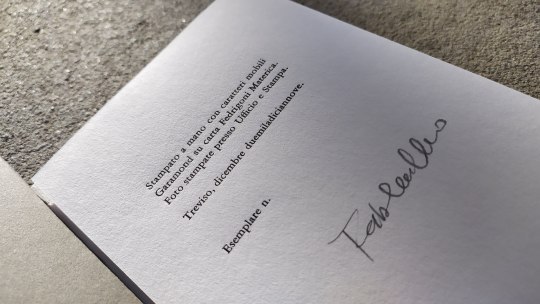 Stampato a mano con caratteri mobili
Garamond su carta Fedrigoni Materica.
Foto stampate presso Ufficio e Stampa.
Treviso, dicembre duemiladiciannove.
Esemplare n.